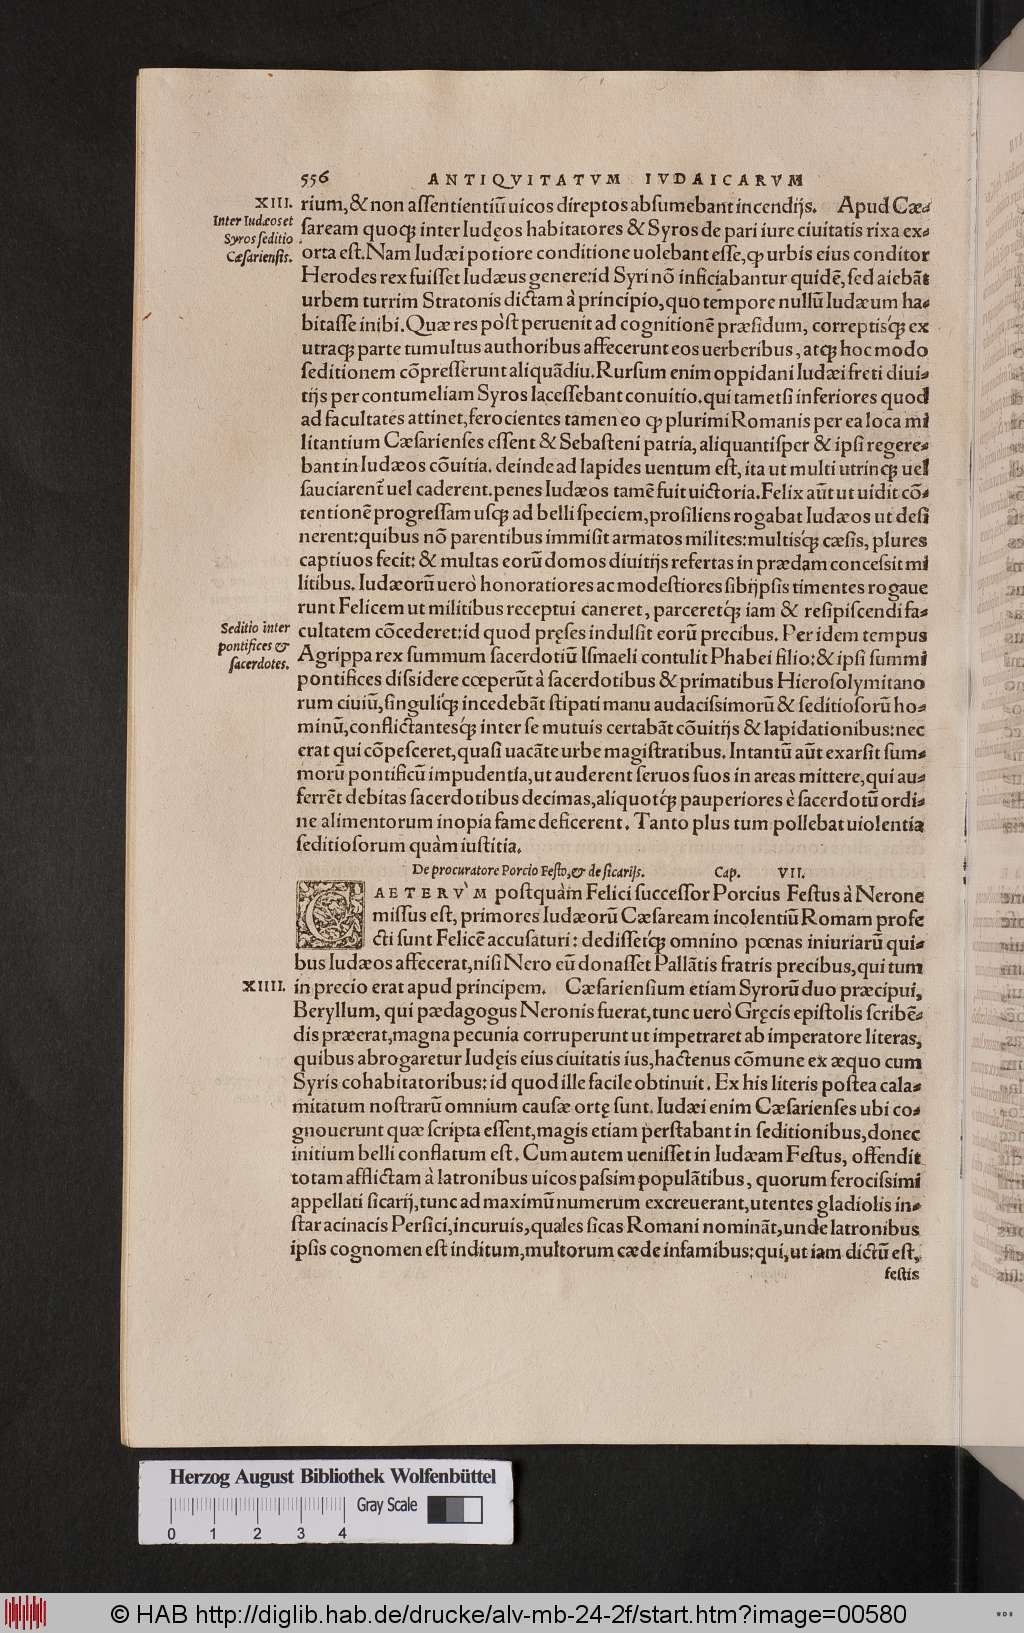 556 ANTIQVITATVM IVDAICARVM
XIII. rium, & non assentientiū uicos direptos absumebant incendijs. Apud Cæ-
Inter Iudæos et
Syros seditio
Cæsariensis.
saream quoq; inter Iudęos habitatores & Syros de pari iure ciuitatis rixa ex-
orta est. Nam Iudæi potiore conditione uolebant esse, ꝙ urbis eius conditor
Herodes rex fuisset Iudæus genere: id Syri nō inficiabantur quidē, sed aiebāt
urbem turrim Stratonis dictam à principio, quo tempore nullū Iudæum ha-
bitasse inibi. Quæ res pòst peruenit ad cognitionē præsidum, correptisq́; ex
utraq; parte tumultus authoribus affecerunt eos uerberibus, atq; hoc modo
seditionem cōpresserunt aliquādiu. Rursum enim oppidani Iudæi freti diui-
tijs per contumeliam Syros lacessebant conuitio. qui tametsi inferiores quod
ad facultates attinet, ferocientes tamen eo ꝙ plurimi Romanis per ea loca mi
litantium Cæsarienses essent & Sebasteni patria, aliquantisper & ipsi regere-
bant in Iudæos cōuitia. deinde ad lapides uentum est, ita ut multi utrinq; uel
sauciarent̃ uel caderent. penes Iudæos tamē fuit uictoria. Felix aūt ut uidit cō-
tentionē progressam usq; ad belli speciem, prosiliens rogabat Iudæos ut desi
nerent: quibus nō parentibus immisit armatos milites: multisq́; cæsis, plures
captiuos fecit: & multas eorū domos diuitijs refertas in prædam concessit mi
litibus. Iudæorū uerò honoratiores ac modestiores sibijpsis timentes rogaue
runt Felicem ut militibus receptui caneret, parceretq́; iam & resipiscendi fa-
Seditio inter
pontifices &
sacerdotes.
cultatem cōcederet: id quod pręses indulsit eorū precibus. Per idem tempus
Agrippa rex summum sacerdotiū Ismaeli contulit Phabei filio: & ipsi summi
pontifices dissidere cœperūt à sacerdotibus & primatibus Hierosolymitano
rum ciuiū, singuliq́; incedebāt stipati manu audacissimorū & seditiosorū ho-
minū, conflictantesq́; inter se mutuis certabāt cōuitijs & lapidationibus: nec
erat qui cōpesceret, quasi uacāte urbe magistratibus. Intantū aūt exarsit sum-
morū pontificū impudentia, ut auderent seruos suos in areas mittere, qui au-
ferrēt debitas sacerdotibus decimas, aliquotq́; pauperiores è sacerdotū ordi-
ne alimentorum inopia fame deficerent. Tanto plus tum pollebat uiolentia
seditiosorum quàm iustitia.
De procuratore Porcio Festo, & de sicarijs. Cap. VII.
CAETERV̀M postquàm Felici successor Porcius Festus à Nerone
missus est, primores Iudæorū Cæsaream incolentiū Romam profe
cti sunt Felicē accusaturi: dedissetq́; omnino pœnas iniuriarū qui-
bus Iudæos affecerat, nisi Nero eū donasset Pallātis fratris precibus, qui tum
XIIII. in precio erat apud principem. Cæsariensium etiam Syrorū duo præcipui,
Beryllum, qui pædagogus Neronis fuerat, tunc uerò Gręcis epistolis scribē-
dis præerat, magna pecunia corruperunt ut impetraret ab imperatore literas,
quibus abrogaretur Iudęis eius ciuitatis ius, hactenus cōmune ex æquo cum
Syris cohabitatoribus: id quod ille facile obtinuit. Ex his literis postea cala-
mitatum nostrarū omnium causæ ortę sunt. Iudæi enim Cæsarienses ubi co-
gnouerunt quæ scripta essent, magis etiam perstabant in seditionibus, donec
initium belli conflatum est. Cum autem uenisset in Iudæam Festus, offendit
totam afflictam à latronibus uicos passim populātibus, quorum ferocissimi
appellati sicarij, tunc ad maximū numerum excreuerant, utentes gladiolis in-
star acinacis Persici, incuruis, quales sicas Romani nomināt, unde latronibus
ipsis cognomen est inditum, multorum cæde infamibus: qui, ut iam dictū est,
festis
Herzog August Bibliothek Wolfenbüttel
Gray Scale
0 1 2 3 4
© HAB http://diglib.hab.de/drucke/alv-mb-24-2f/start.htm?image=00580